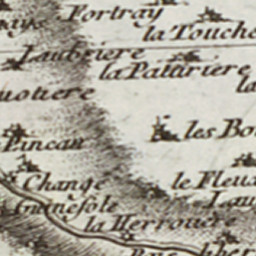 Fortray
la Touche
Laubriere
la Patariere
la
uotiere
les Bo
Pincau
Changé
le Fleu
Guinefole
Lau
la Herrouere